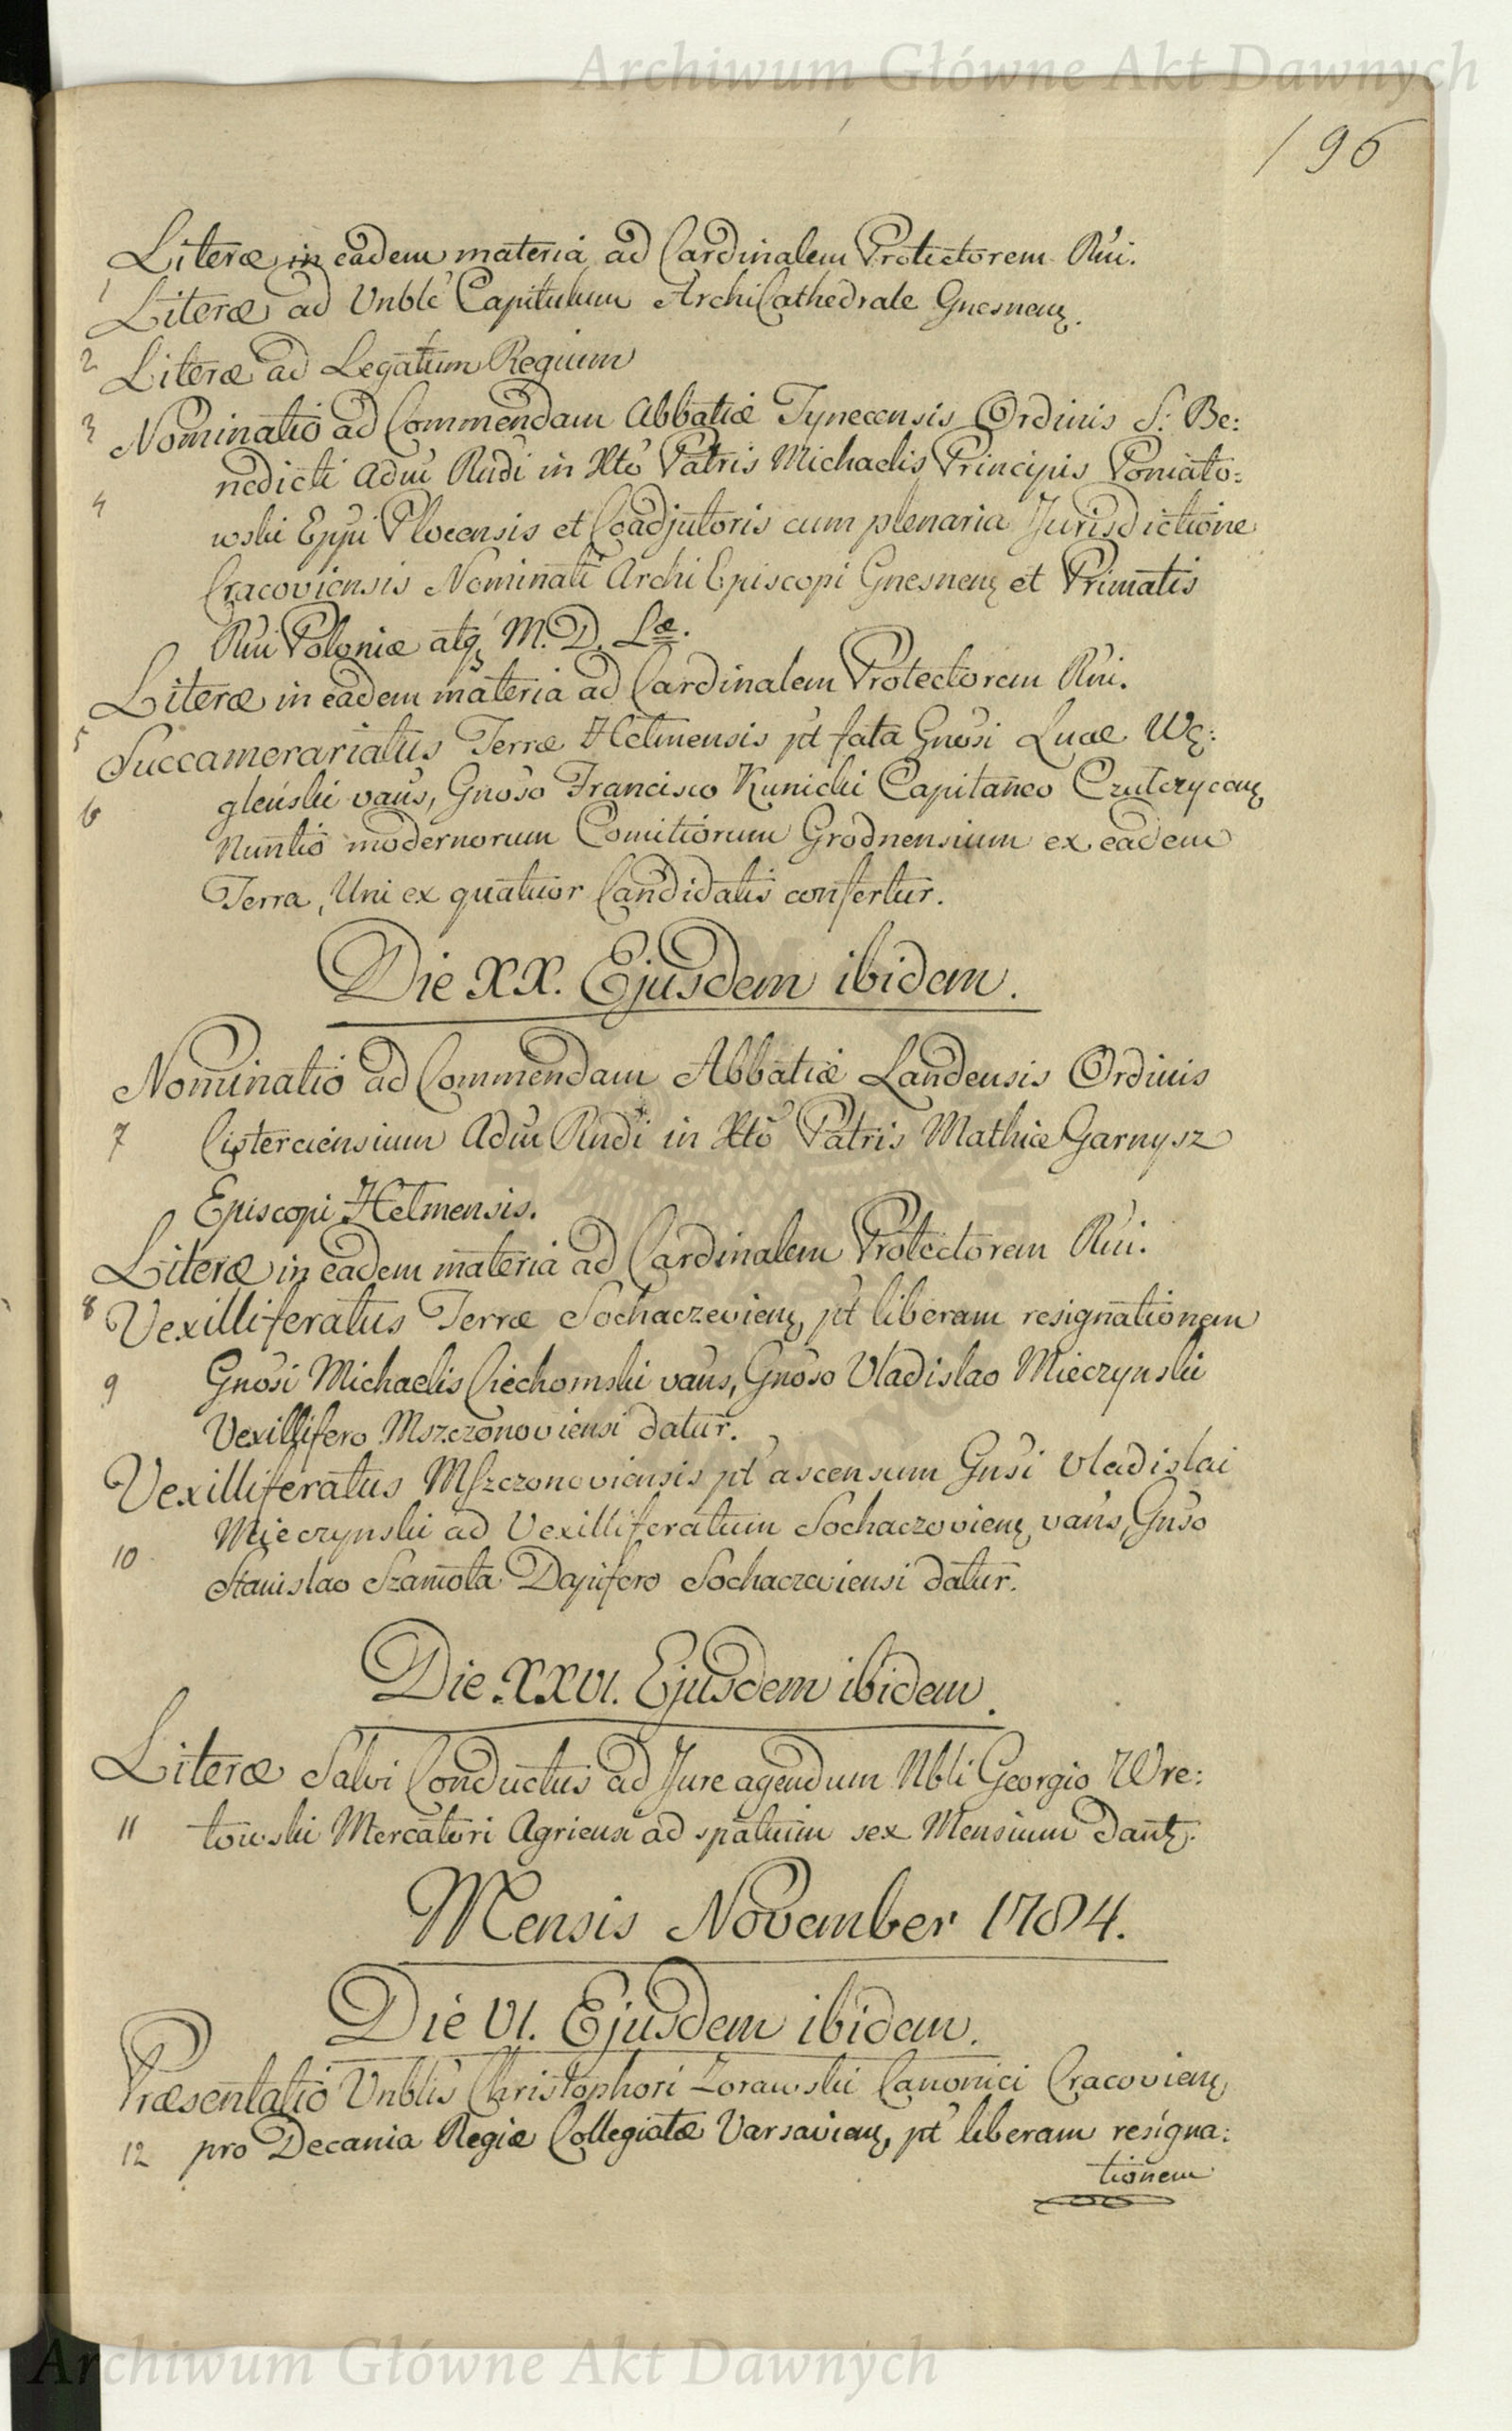 Archiwum Główne Akt Dawnych
196
Literæ in eadem materia ad Cardinalem Protectorem Rni.
1 Literæ ad Vnble Capitulum ArchiCathedrale Gnesnenꝫ.
2 Literæ ad Legatum Regium
3 Nominatio ad Commendam Abbatiæ Tynecensis Ordinis S: Be:
nedicti Adm Rndi in Xto Patris Michaelis Principis Poniato:
4 wski Eppi Plocensis et Coadjutoris cum plenaria Jurisdictione
Cracoviensis Nominati Archi Episcopi Gnesnenꝫ et Primatis
Rni Poloniæ atqꝫ M. D. Læ.
Literæ in eadem materia ad Cardinalem Protectorem Rni.
5 Succamerariatus Terræ Helmensis pt fata Gnosi Lucæ Wę:
gleński vans, Gnoso Francisco Kunicki Capitaneo Czulczycenꝫ
6 Nuntio modernorum Comitiorum Grodnensium ex eadem
Terra, Uni ex quatuor Candidatis confertur.
Die XX. Ejusdem ibidem.
Nominatio ad Commendam Abbatiæ Landensis Ordinis
7 Cisterciensium Adm Rndi in Xto Patris Mathiæ Garnysz
Episcopi Helmensis.
Literæ in eadem materia ad Cardinalem Protectorem Rni.
8 Vexilliferatus Terræ Sochaczevienꝫ pt liberam resignationem
9 Gnosi Michaelis Ciechomski vans, Gnoso Vladislao Mieczynski
Vexillifero Mszczonoviensi datur.
Vexilliferatus Mszczonoviensis pt ascensum Gnsi Vladislai
Mieczynski ad Vexilliferatum Sochaczovienꝫ vans, Gnso
10 Stanislao Szamota Dapifero Sochaczeviensi datur.
Die XXVI. Ejusdem ibidem.
Literæ Salvi Conductus ad Jure agendum Nbli Georgio Wre:
11 towski Mercatori Agriensi ad spatium sex Mensium dantꝫ.
Mensis November 1784.
Die VI. Ejusdem ibidem.
Præsentatio Vnblis Christophori Zorawski Canonici Cracovienꝫ
12 pro Decania Regiæ Collegiatæ Varsavienꝫ, pt liberam resigna:
tionem
Archiwum Główne Akt Dawnych